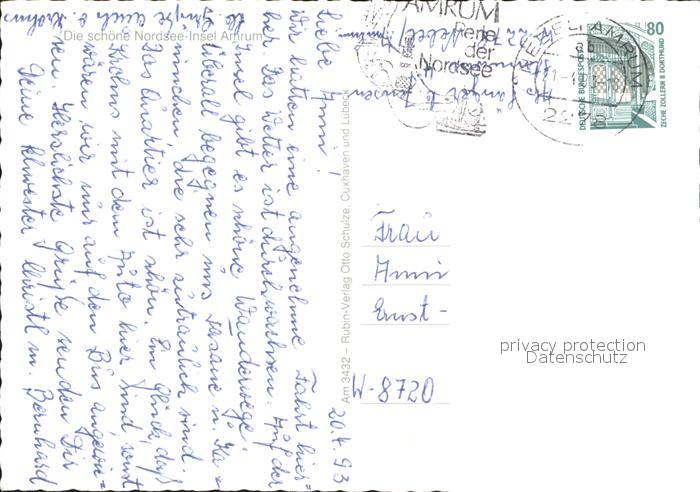 Die schöne Nordsee-Insel Amrum
20.4.93
Liebe Anni!
Wir hatten eine angenehme Fahrt hier=
her. Das Wetter ist durchwachsen. Auf der
Insel gibt es schöne Wanderwege.
Überall begegnen uns Fasane u. Ka=
ninchen die sehr zutraulich sind.
Das Quartier ist schön. Ein Glück, daß
Krohms mit dem Auto hier sind sonst
wären wir nur auf den Bus angewie=
sen. Herzlichste Grüße senden Dir
Deine Schwester Christl m. Bernhard
Am 3432 – Rubin-Verlag Otto Schulze, Cuxhaven und Lübeck
AMRUM
Ferien
der
Nordsee
NEBEL, AMRUM
80
DEUTSCHE BUNDESPOST
ZECHE ZOLLERN II DORTMUND
Frau
Anni
Ernst-
W-8720
privacy protection
Datenschutz